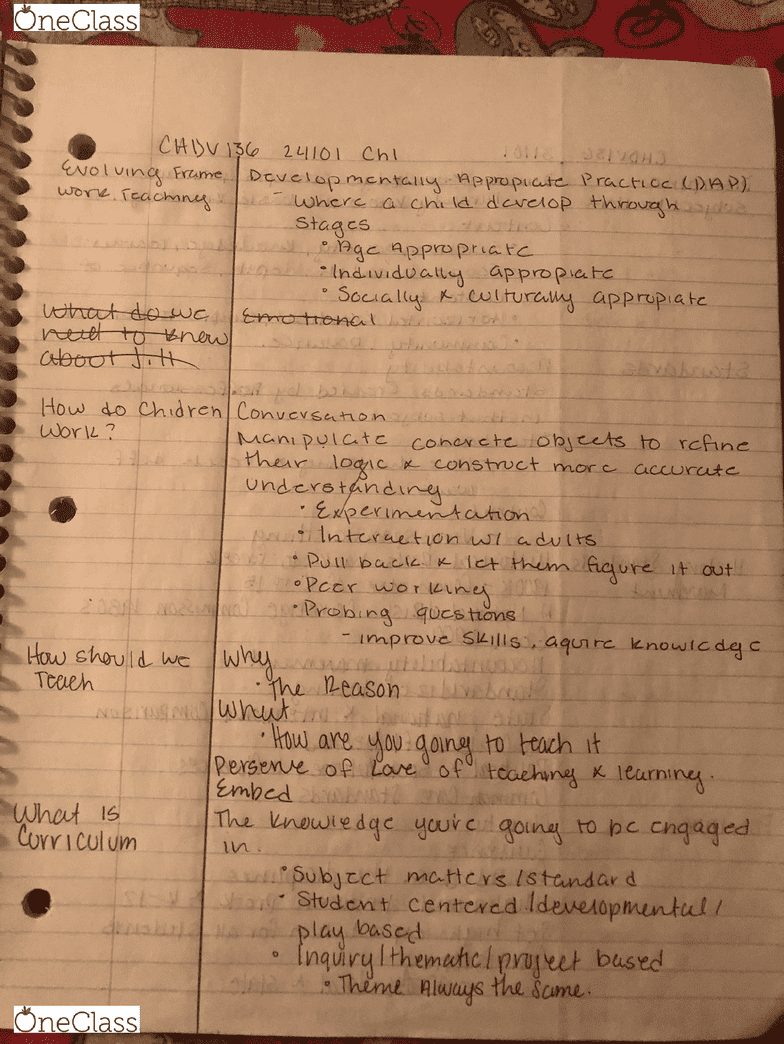 OneClass
CHDV 136 24101 Ch1
Evolving Frame Developmentally Appropiate Practice (DAP)
work Teaching - where a child develop through
stages
• Age Appropriate
• Individually appropiate
• Socially & culturally appropiate
What do we Emotional
need to know
about Jill
How do Chidren Conversation
work? Manipulate concrete objects to refine
their logic & construct more accurate
understanding
• Experimentation
• Interaction w/ adults
• Pull back & let them figure it out
• Peer working
• Probing questions
- improve skills, aquire knowledge
How should we Why
Teach • The Reason
What
• How are you going to teach it
Perserve of Love of teaching & learning.
Embed
What is The knowledge you're going to be engaged
Curriculum in.
• Subject matters/standard
• Student centered/developmental/
play based
• Inquiry/thematic/project based
• Theme Always the same.
OneClass